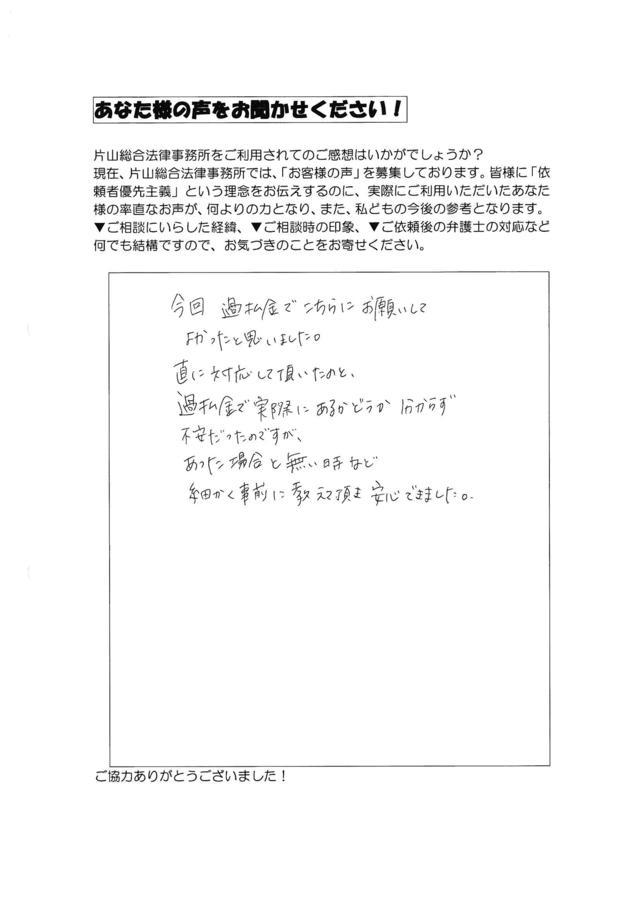 あなた様の声をお聞かせください！
片山総合法律事務所をご利用されてのご感想はいかがでしょうか？
現在、片山総合法律事務所では、「お客様の声」を募集しております。皆様に「依
頼者優先主義」という理念をお伝えするのに、実際にご利用いただいたあなた
様の率直なお声が、何よりの力となり、また、私どもの今後の参考となります。
▼ご相談にいらした経緯、▼ご相談時の印象、▼ご依頼後の弁護士の対応など
何でも結構ですので、お気づきのことをお寄せください。
今回 過払金でこちらにお願いして
よかったと思いました。
直に対応して頂いたのと、
過払金で実際にあるかどうか分からず
不安だったのですが、
あった場合と無い時など
細かく事前に教えて頂き安心できました。
ご協力ありがとうございました！